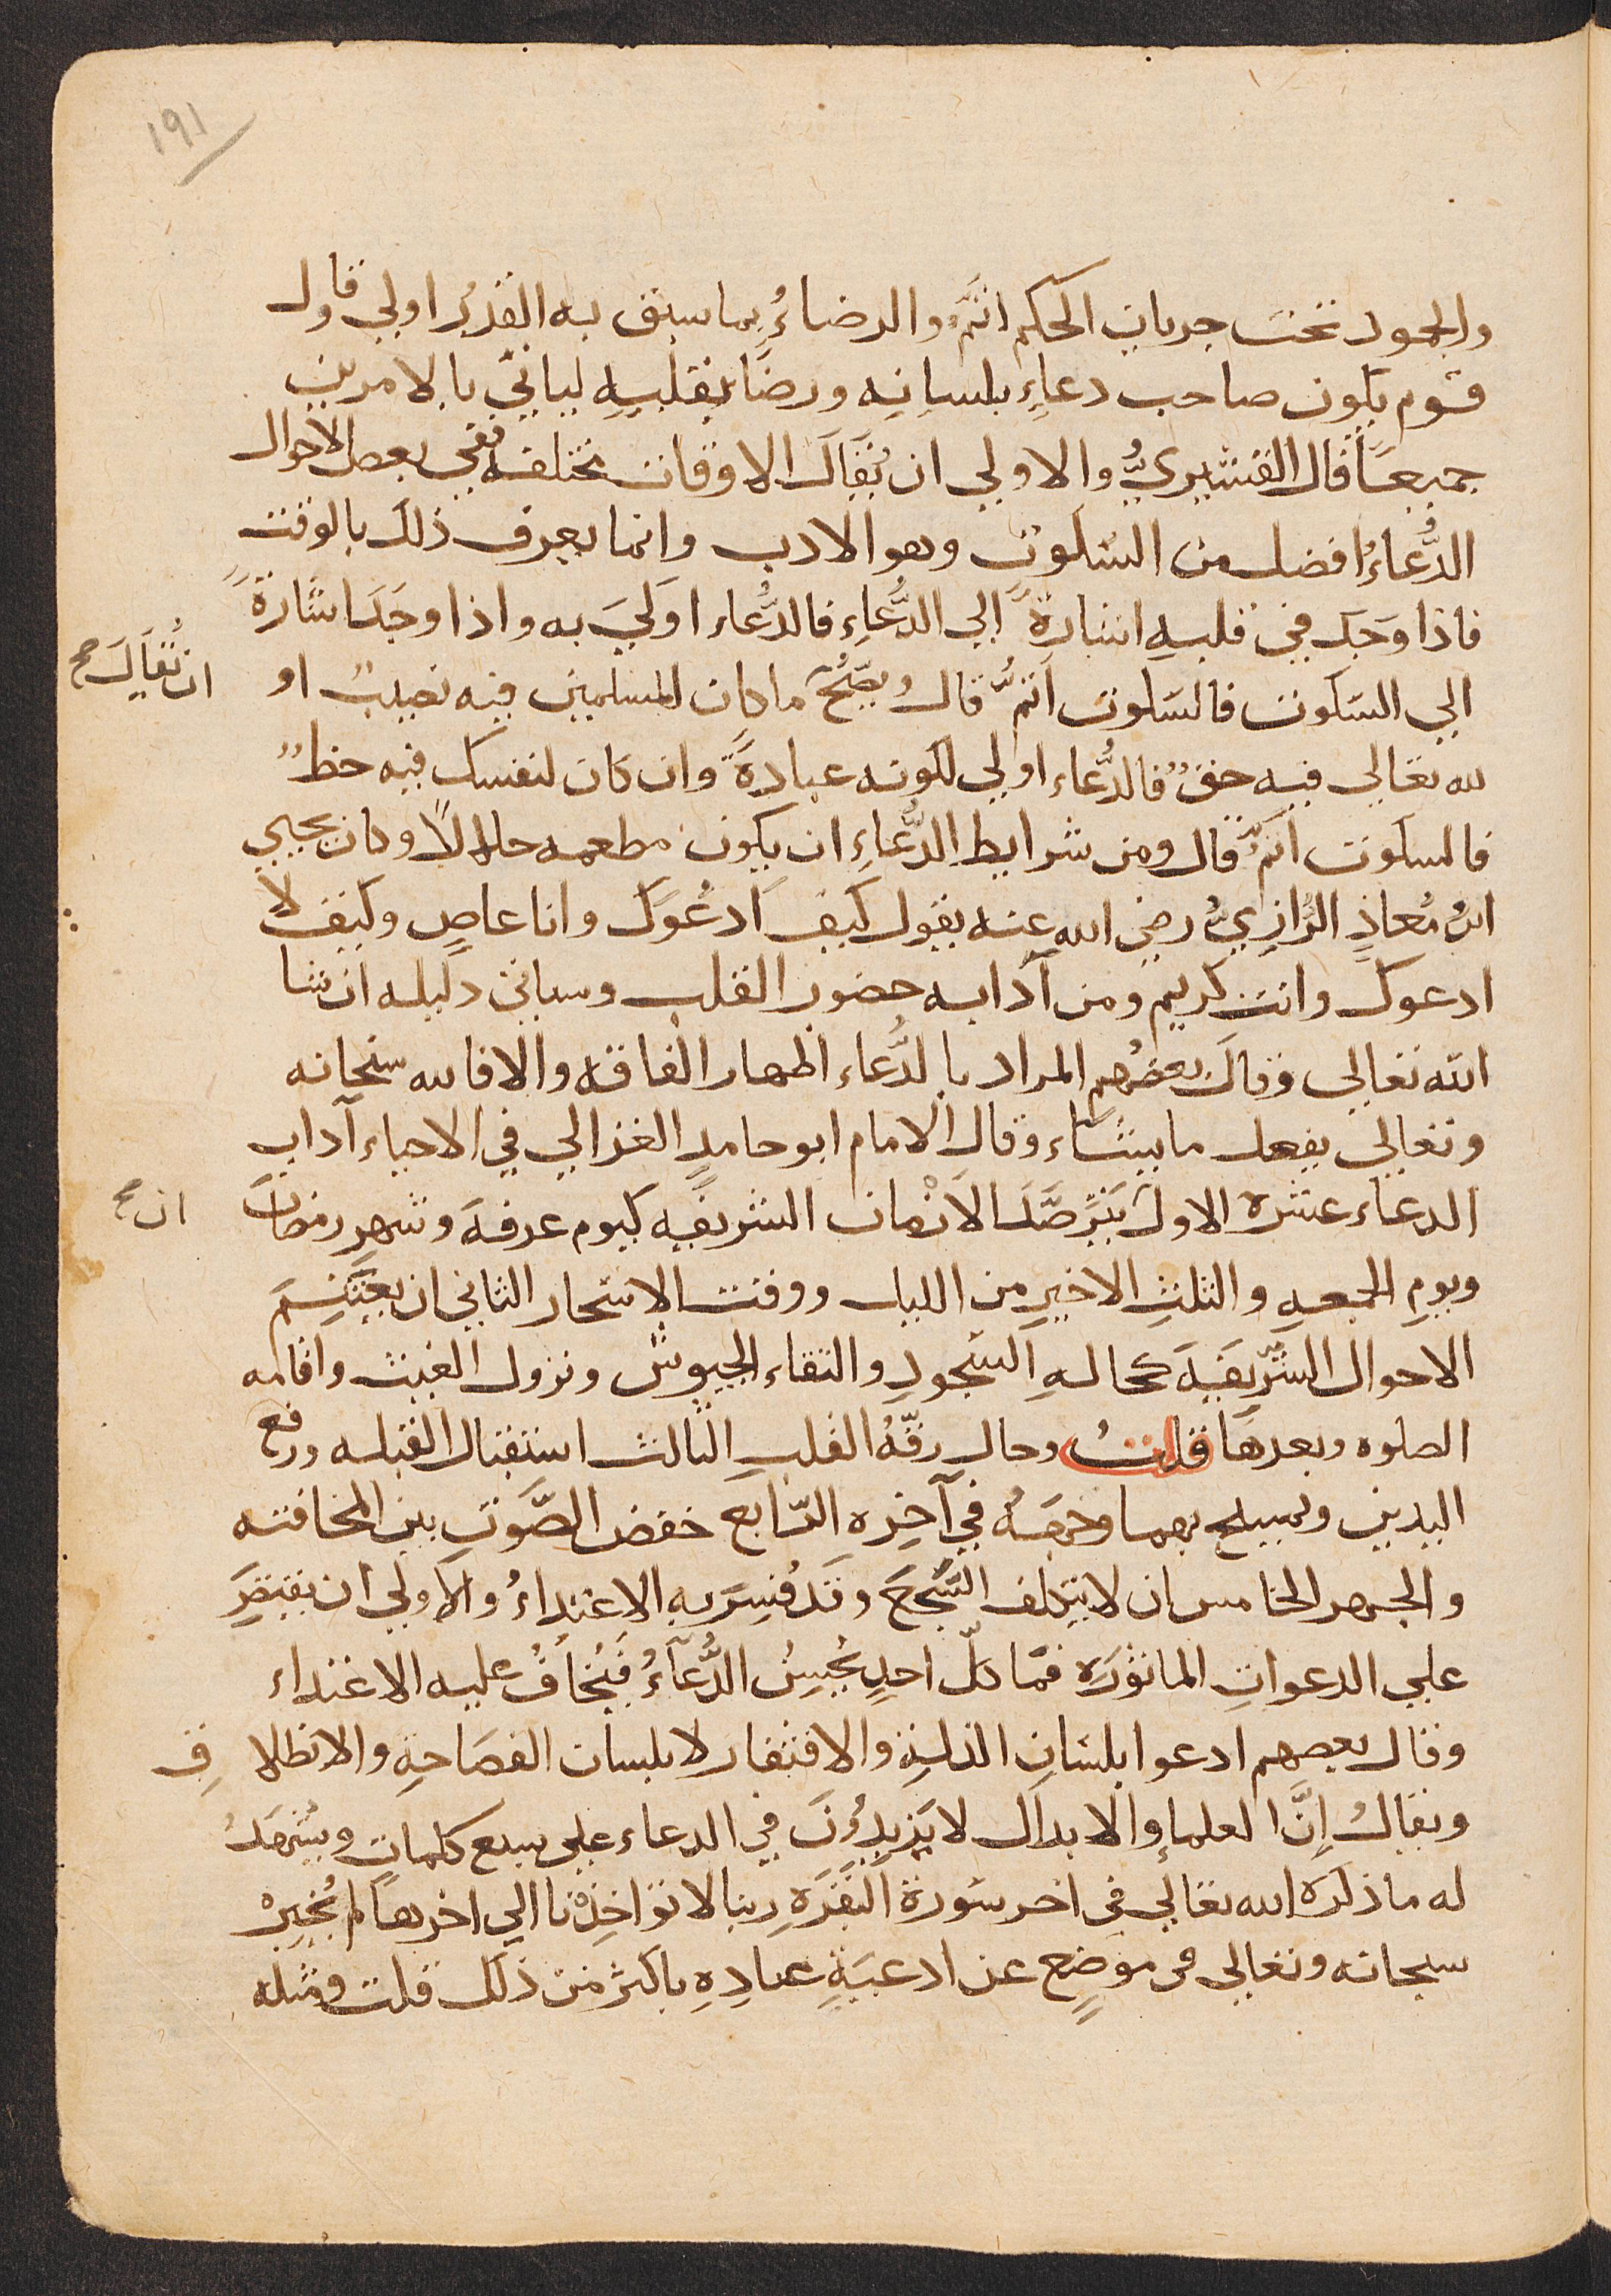 ١٩١
والجمود تحت جريان الحكم اتمُّ والرضاءُ بما سبق به القدرُ اولي وقال
قوم يكون صاحب دعاءٍ بلسانِه ورضًا بقلبِهِ لياتيَ بالامرين
جميعًا قال القشيريُّ والاولي ان يُقالَ الاوقات مختلفه ففي بعض الاحوال
الدُّعاءُ افضل من السكوت وهو الادب وانما يعرف ذلك بالوقت
فاذا وَجَد في قلبهِ اشارةً الي الدُّعاءِ فالدُّعاء اوليَ به واذا وجَدَ اشارةً
الي السكوت فالسكوت اتمُّ قال ويصّحُّ ما كان للمسلمين فيه نصيبٌ او
ان يُقالَ صح
لله تعالي فيه حقٌ فالدُّعاء اولي لكونه عبادةً وان كان لنفسك فيه حظٌ
فالسكوت اتمُّ قال ومن شرايط الدُّعاءِ ان يكون مطعمه حلالاً وكان يحيي
ابنُ مُعاذٍ الرَّازيُّ رضي الله عنه يقول كيف ادعُوكَ وانا عاصٍ وكيف لا
ادعوك وانت كريم ومن آدابه حضور القلب وسياتي دليله ان شا
الله تعالي وقال بعضُهم المراد بالدُّعاء اظهار الفاقه والا فالله سبحانه
وتعالي يفعل ما يشاء وقال الامام ابو حامدٍ الغزالي في الاحياء آداب
الدعاء عشره الاول يَترصَّدَ الاَزْمان الشريفه كيوم عرفة وشهر رمضان
ان صح
ويومِ الجمعهِ والثلثِ الاخيرِ من الليل ووقت الاسحار الثاني ان يغتنِمَ
الاحوال الشَّريفهَ كحالهِ السجودِ والتقاء الجيوش ونزول الغيث واقامه
الصلوه وبعدها قلتُ وحال رقّهُ القلبِ الثالث استقبال القبله ورفع
اليدين ويمسح بهما وجهَهُ في آخِره الرّابع خفض الصَّوتِ بين المخافته
والجهر الخامس ان لا يتكلف السَّجعَ وقد فُسِرَ به الاعتداءُ والاولي ان يقتصِرَ
علي الدعواتِ الماثورَه فما كلّ احدٍ يُحسِنُ الدُّعآءُ فيُخافُ عليه الاعتداء
وقال بعضهم ادعوا بلسَانِ الذلهِ والافتقار لا بلسان الفصَاحهِ والانطلاقِ
ويقالُ اِنَّ العلماءِ والابدال لا يَزيدُونَ في الدعاء علي سبع كلماتٍ ويشهدُ
له ما ذكرَه الله تعالي في اخر سُورة البَقَرَهِ ربنا لا تواخِذْنا الي اخرها لم يُخبرْ
سبحانه وتعالي في موضِعٍ عن ادعيَةٍ عبادِهِ باكثر من ذلك قلت ومثله